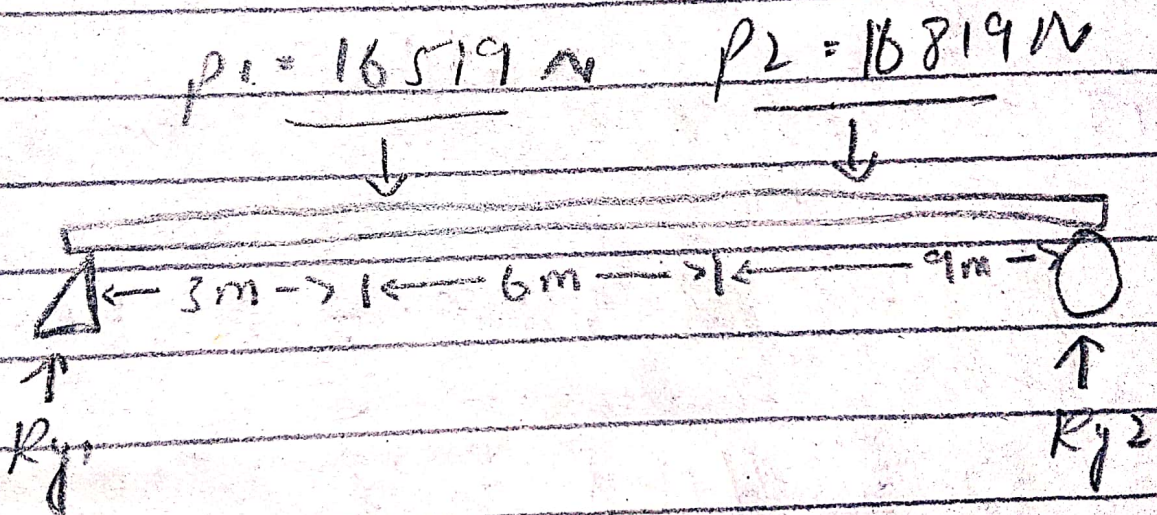 P1 = 16519 N P2 = 16819 N
3m 6m 9m
Ry1 Ry2